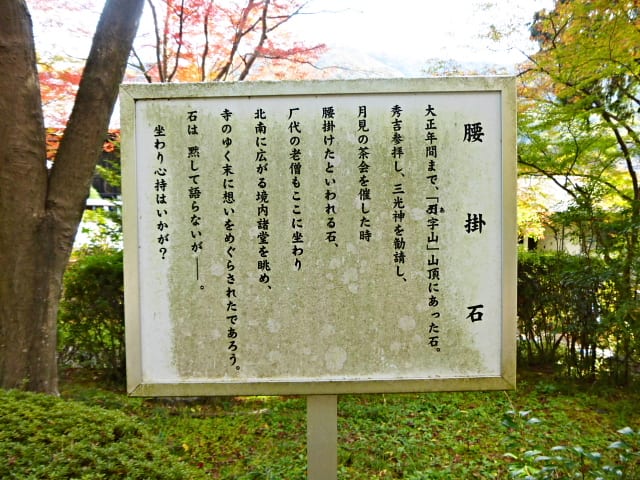 腰掛石
大正年間まで、「あ字山」山頂にあった石。
秀吉参拝し、三光神を勧請し、
月見の茶会を催した時
腰掛けたといわれる石、
厂代の老僧もここに坐わり
北南に広がる境内諸堂を眺め、
寺のゆく末に想いをめぐらされたであろう。
石は 黙して語らないが――。
坐わり心持はいかが？